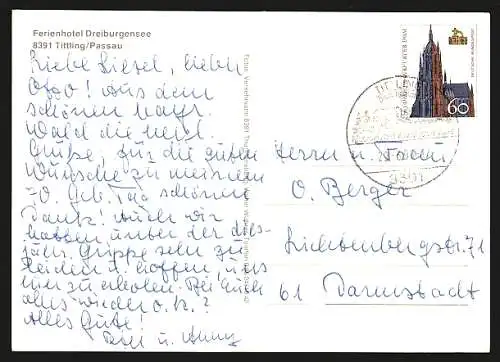 Ferienhotel Dreiburgensee
8391 Tittling/Passau
Liebe Liesel, lieber
Otto! Aus dem
schönen Bayr.
Wald die herzl.
Grüße, für die guten
Wünsche zu meinem
70. Geb. Tag schönen
Dank! Auch wir
hatten unter der dies-
jähr. Grippe sehr zu
leiden u. hoffen, uns
hier zu erholen. Bei Euch
alles wieder o.k.?
Alles Gute!
u.
DEUTSCHE BUNDESPOST
60
TITTLING
8391
Herrn u. Frau
O. Berger
Lichtenbergstr. 71
61 Darmstadt